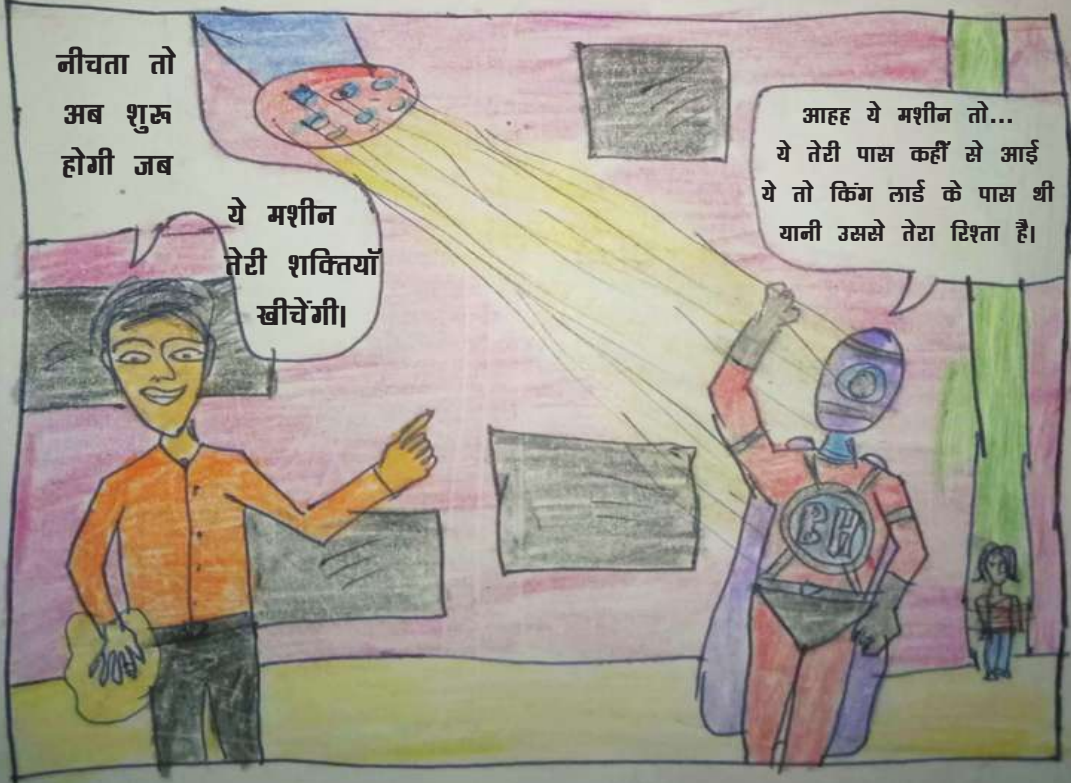 नीचता तो
अब शुरू
होगी जब
ये मशीन
तेरी शक्तियाॅ
खीचेंगी।
आहह ये मशीन तो...
ये तेरी पास कहीं से आई
ये तो किंग लार्ड के पास थी
यानी उससे तेरा रिश्ता है।
BH